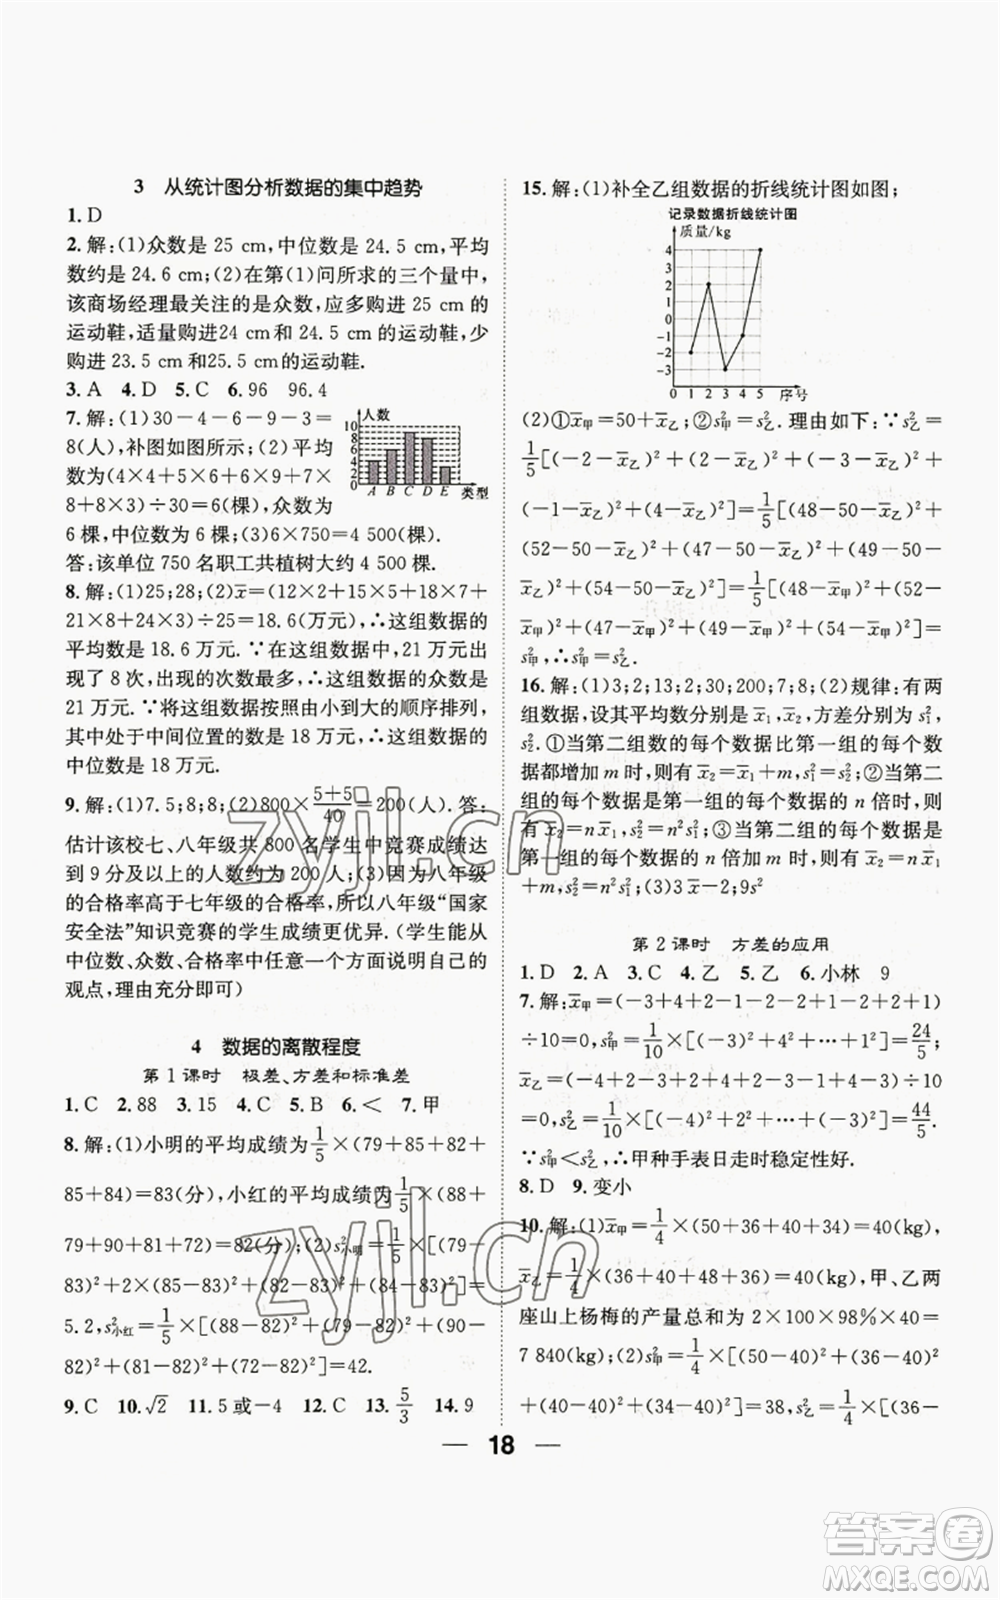 3 从统计图分析数据的集中趋势
1. D
2. 解:(1)众数是 25 cm,中位数是 24.5 cm,平均
数约是 24.6 cm;(2)在第(1)问所求的三个量中,
该商场经理最关注的是众数,应多购进 25 cm 的
运动鞋,适量购进24 cm 和 24.5 cm 的运动鞋,少
购进 23.5 cm 和25.5 cm的运动鞋.
3. A 4. D 5. C 6. 96 96.4
7. 解:(1)30-4-6-9-3=
8(人),补图如图所示;(2)平均
数为(4×4+5×6+6×9+7×
8+8×3)÷30=6(棵),众数为
6 棵,中位数为 6 棵;(3)6×750=4 500(棵).
答:该单位 750 名职工共植树大约 4 500 棵.
人数
10
8
6
4
2
0
A B C D E 类型
8. 解:(1)25;28;(2)x̄=(12×2+15×5+18×7+
21×8+24×3)÷25=18.6(万元),∴这组数据的
平均数是 18.6 万元.∵在这组数据中,21 万元出
现了 8 次,出现的次数最多,∴这组数据的众数是
21 万元.∵将这组数据按照由小到大的顺序排列,
其中处于中间位置的数是 18 万元,∴这组数据的
中位数是 18 万元.
9. 解:(1)7.5;8;8;(2)800×(5+5)/40=200(人). 答:
估计该校七、八年级共 800 名学生中竞赛成绩达
到 9 分及以上的人数约为 200 人;(3)因为八年级
的合格率高于七年级的合格率,所以八年级“国家
安全法”知识竞赛的学生成绩更优异.(学生能从
中位数、众数、合格率中任意一个方面说明自己的
观点,理由充分即可)
4 数据的离散程度
第 1 课时 极差、方差和标准差
1. C 2. 88 3. 15 4. C 5. B 6. < 7. 甲
8. 解:(1)小明的平均成绩为1/5×(79+85+82+
85+84)=83(分),小红的平均成绩为1/5×(88+
79+90+81+72)=82(分);(2)s²小明=1/5×[(79-
83)²+2×(85-83)²+(82-83)²+(84-83)²]=
5.2,s²小红=1/5×[(88-82)²+(79-82)²+(90-
82)²+(81-82)²+(72-82)²]=42.
9. C 10. √2 11. 5 或-4 12. C 13. 5/3 14. 9
15. 解:(1)补全乙组数据的折线统计图如图;
记录数据折线统计图
质量/kg
4
3
2
1
0
-1
-2
-3
0 1 2 3 4 5 序号
(2)①x̄甲=50+x̄乙;②s²甲=s²乙. 理由如下:∵s²乙=
1/5[(-2-x̄乙)²+(2-x̄乙)²+(-3-x̄乙)²+
(-1-x̄乙)²+(4-x̄乙)²]=1/5[(48-50-x̄乙)²+
(52-50-x̄乙)²+(47-50-x̄乙)²+(49-50-
x̄乙)²+(54-50-x̄乙)²]=1/5[(48-x̄甲)²+(52-
x̄甲)²+(47-x̄甲)²+(49-x̄甲)²+(54-x̄甲)²]=
s²甲,∴s²甲=s²乙.
16. 解:(1)3;2;13;2;30;200;7;8;(2)规律:有两
组数据,设其平均数分别是 x̄₁,x̄₂,方差分别为 s₁²,
s₂². ①当第二组数的每个数据比第一组的每个数
据都增加 m 时,则有 x̄₂=x̄₁+m,s₂²=s₁²;②当第二
组的每个数据是第一组的每个数据的 n 倍时,则
有 x̄₂=n x̄₁,s₂²=n²s₁²;③当第二组的每个数据是
第一组的每个数据的 n 倍增加 m 时,则有 x̄₂=n x̄₁
+m,s₂²=n²s₁²;(3)3 x-2;9s²
第 2 课时 方差的应用
1. D 2. A 3. C 4. 乙 5. 乙 6. 小林 9
7. 解:x̄甲=(-3+4+2-1-2-2+1-2+2+1)
÷10=0,s²甲=1/10×[(-3)²+4²+…+1²]=24/5;
x̄乙=(-4+1-2+1+4+1-2-1+4-2)÷10
=0,s²乙=1/10×[(-4)²+1²+…+(-2)²]=44/5.
∵s²甲<s²乙,∴甲种手表日走时稳定性好.
8. D 9. 变小
10. 解:(1)x̄甲=1/4×(50+36+40+34)=40(kg),
x̄乙=1/4×(36+40+48+36)=40(kg),甲、乙两
座山上杨梅的产量总和为 2×100×98%×40=
7 840(kg);(2)s²甲=1/4×[(50-40)²+(36-40)²
+(40-40)²+(34-40)²]=38,s²乙=1/4×[(36-
— 18 —
zyjl.cn
zyjl.cn
答案卷
MXQE.COM